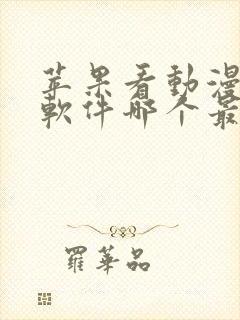 苹果看動漫
軟件哪个最
羅華品